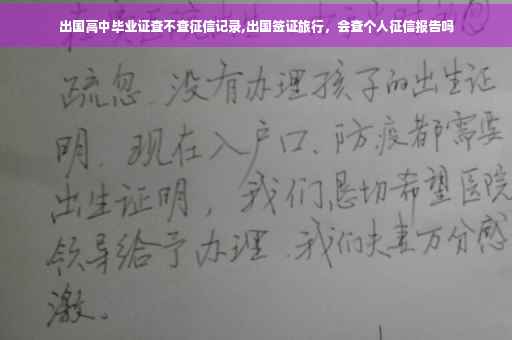 出国高中毕业证查不查征信记录,出国签证旅行，会查个人征信报告吗
疏忽、没有办理孩子的出生证
明、现在入户口、防疫都需要
出生证明，我们恳切希望医院
领导给予办理、我们夫妻万分感
激。